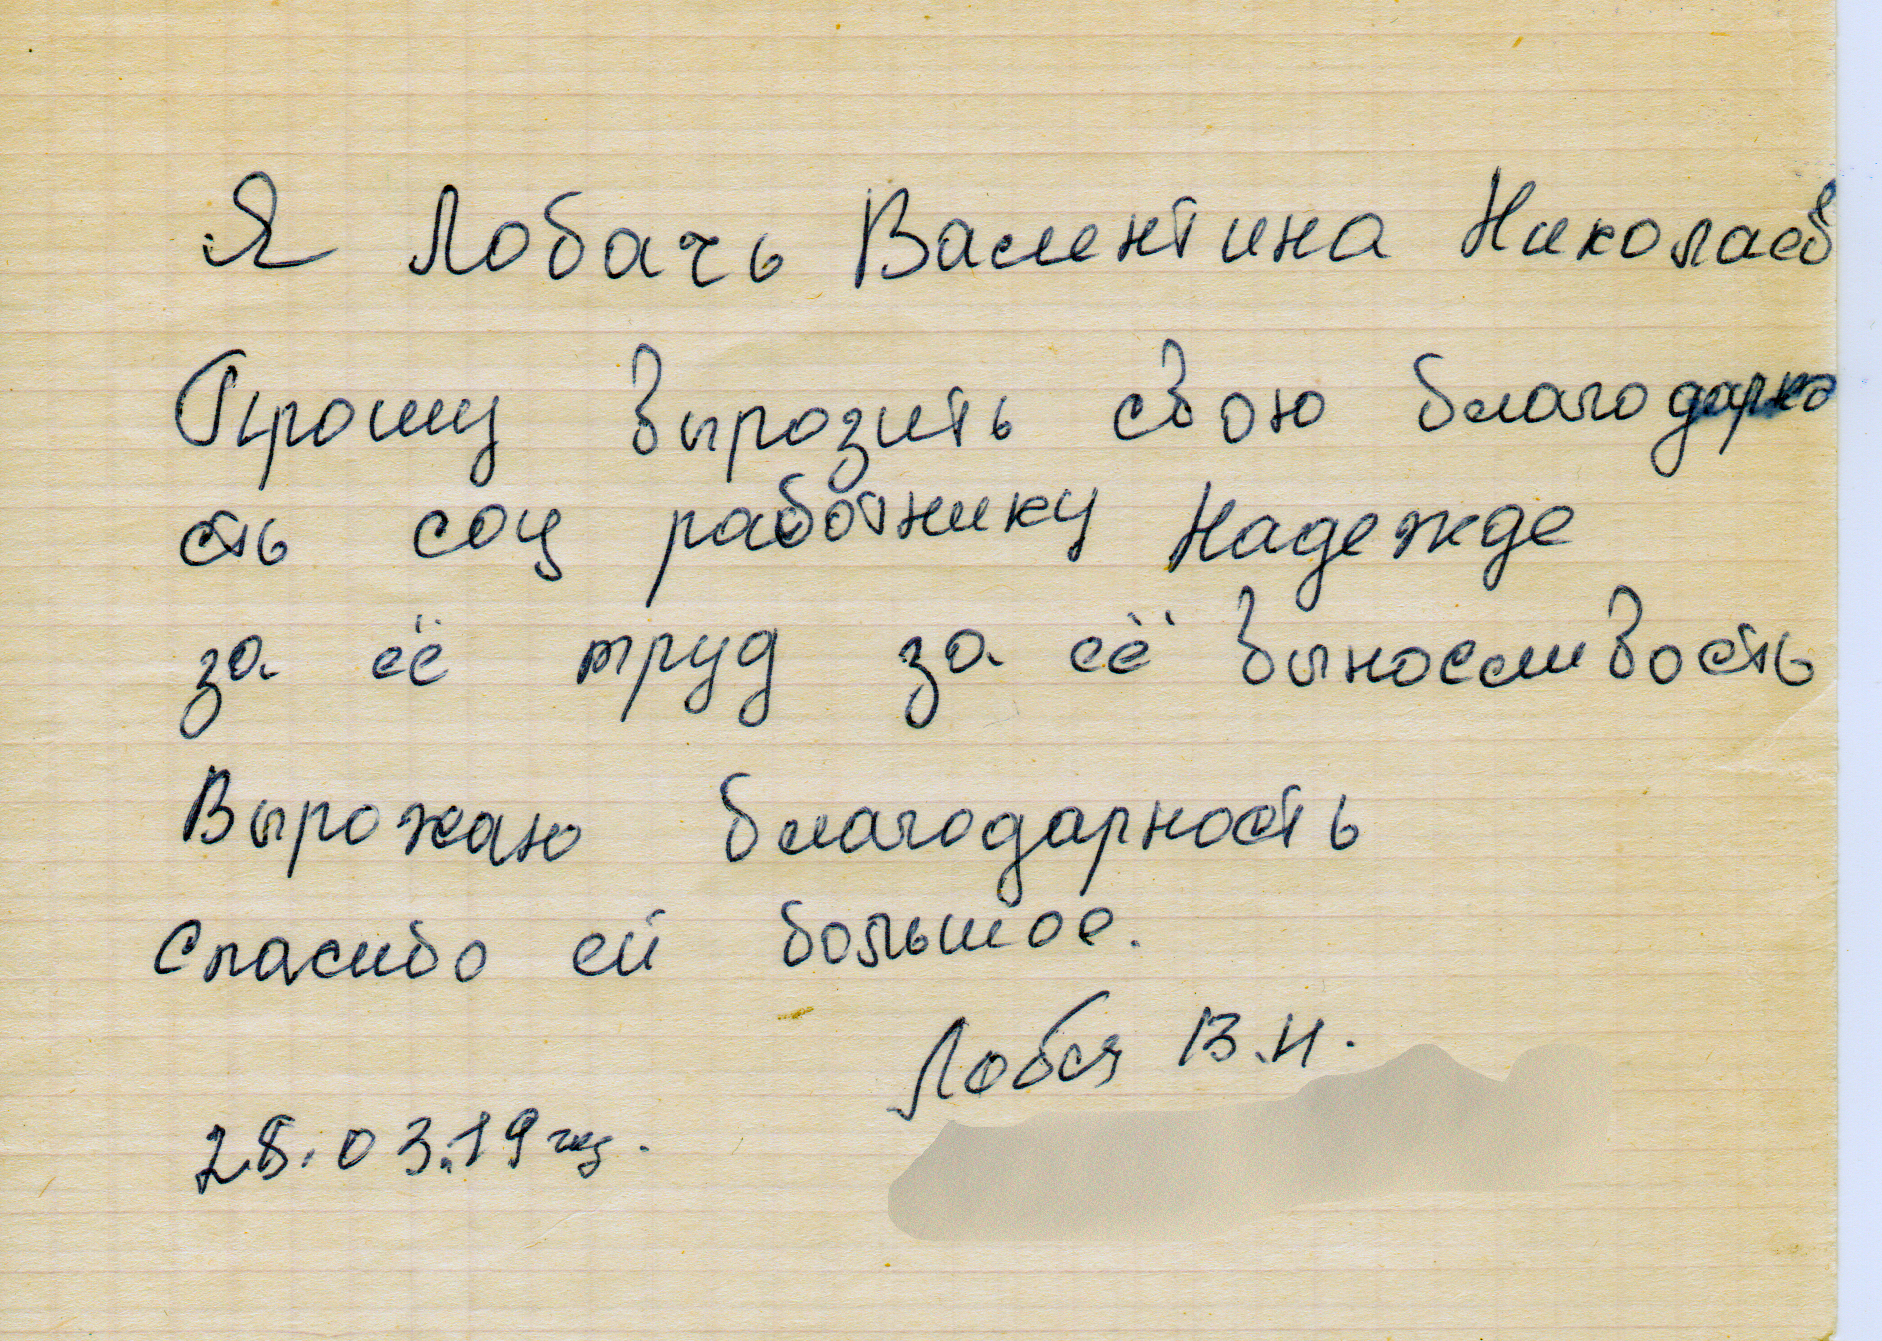 Я Лобачь Валентина Николаев
Прошу вырозить свою благодарно
сть соц работнику Надежде
за её труд за её выносливость
Вырожаю благодарность
Спасибо ей большое.
В.Н.
28.03.19